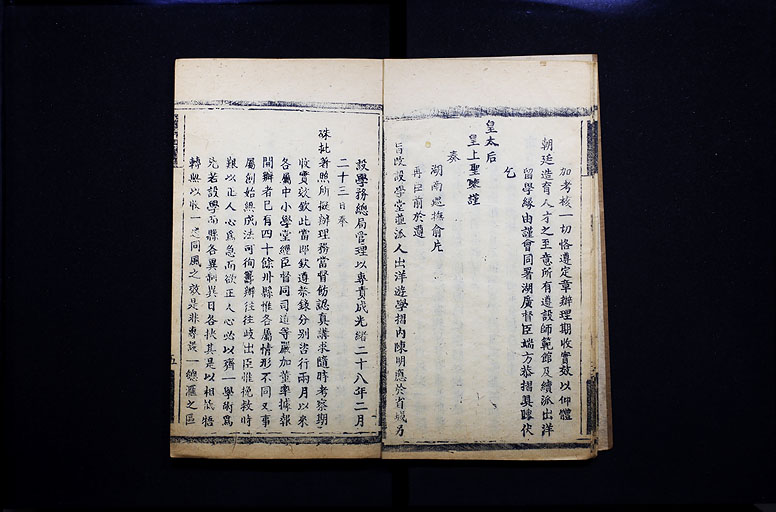 加考核一切恪遵定章辦理期收實效以仰體
朝廷造育人才之至意所有遵設師範館及續派出洋
留學緣由謹會同署湖廣督臣端方恭摺具陳伏
乞
皇太后
皇上聖鑒謹
奏
湖南巡撫俞片
再臣前於遵
旨改設學堂並派人出洋遊學摺內陳明應於省城另
設學務總局管理以專責成光緒二十八年二月
二十三日奉
硃批著照所擬辦理務當督飭認真講求隨時考察期
收實效欽此當即欽遵恭錄分別咨行兩月以來
各屬中小學堂經臣督同司道等嚴加董率據報
開辦者已有四十餘州縣惟各屬情形不同又事
屬創始無成法可循籌辦往往歧出臣惟挽救時
艱以正人心為急而欲正人心必以齊一學術為
先若設學而縣各異制異日各挾其是以相詆牾
轉無以收一道同風之效是非專設一總滙之區
五